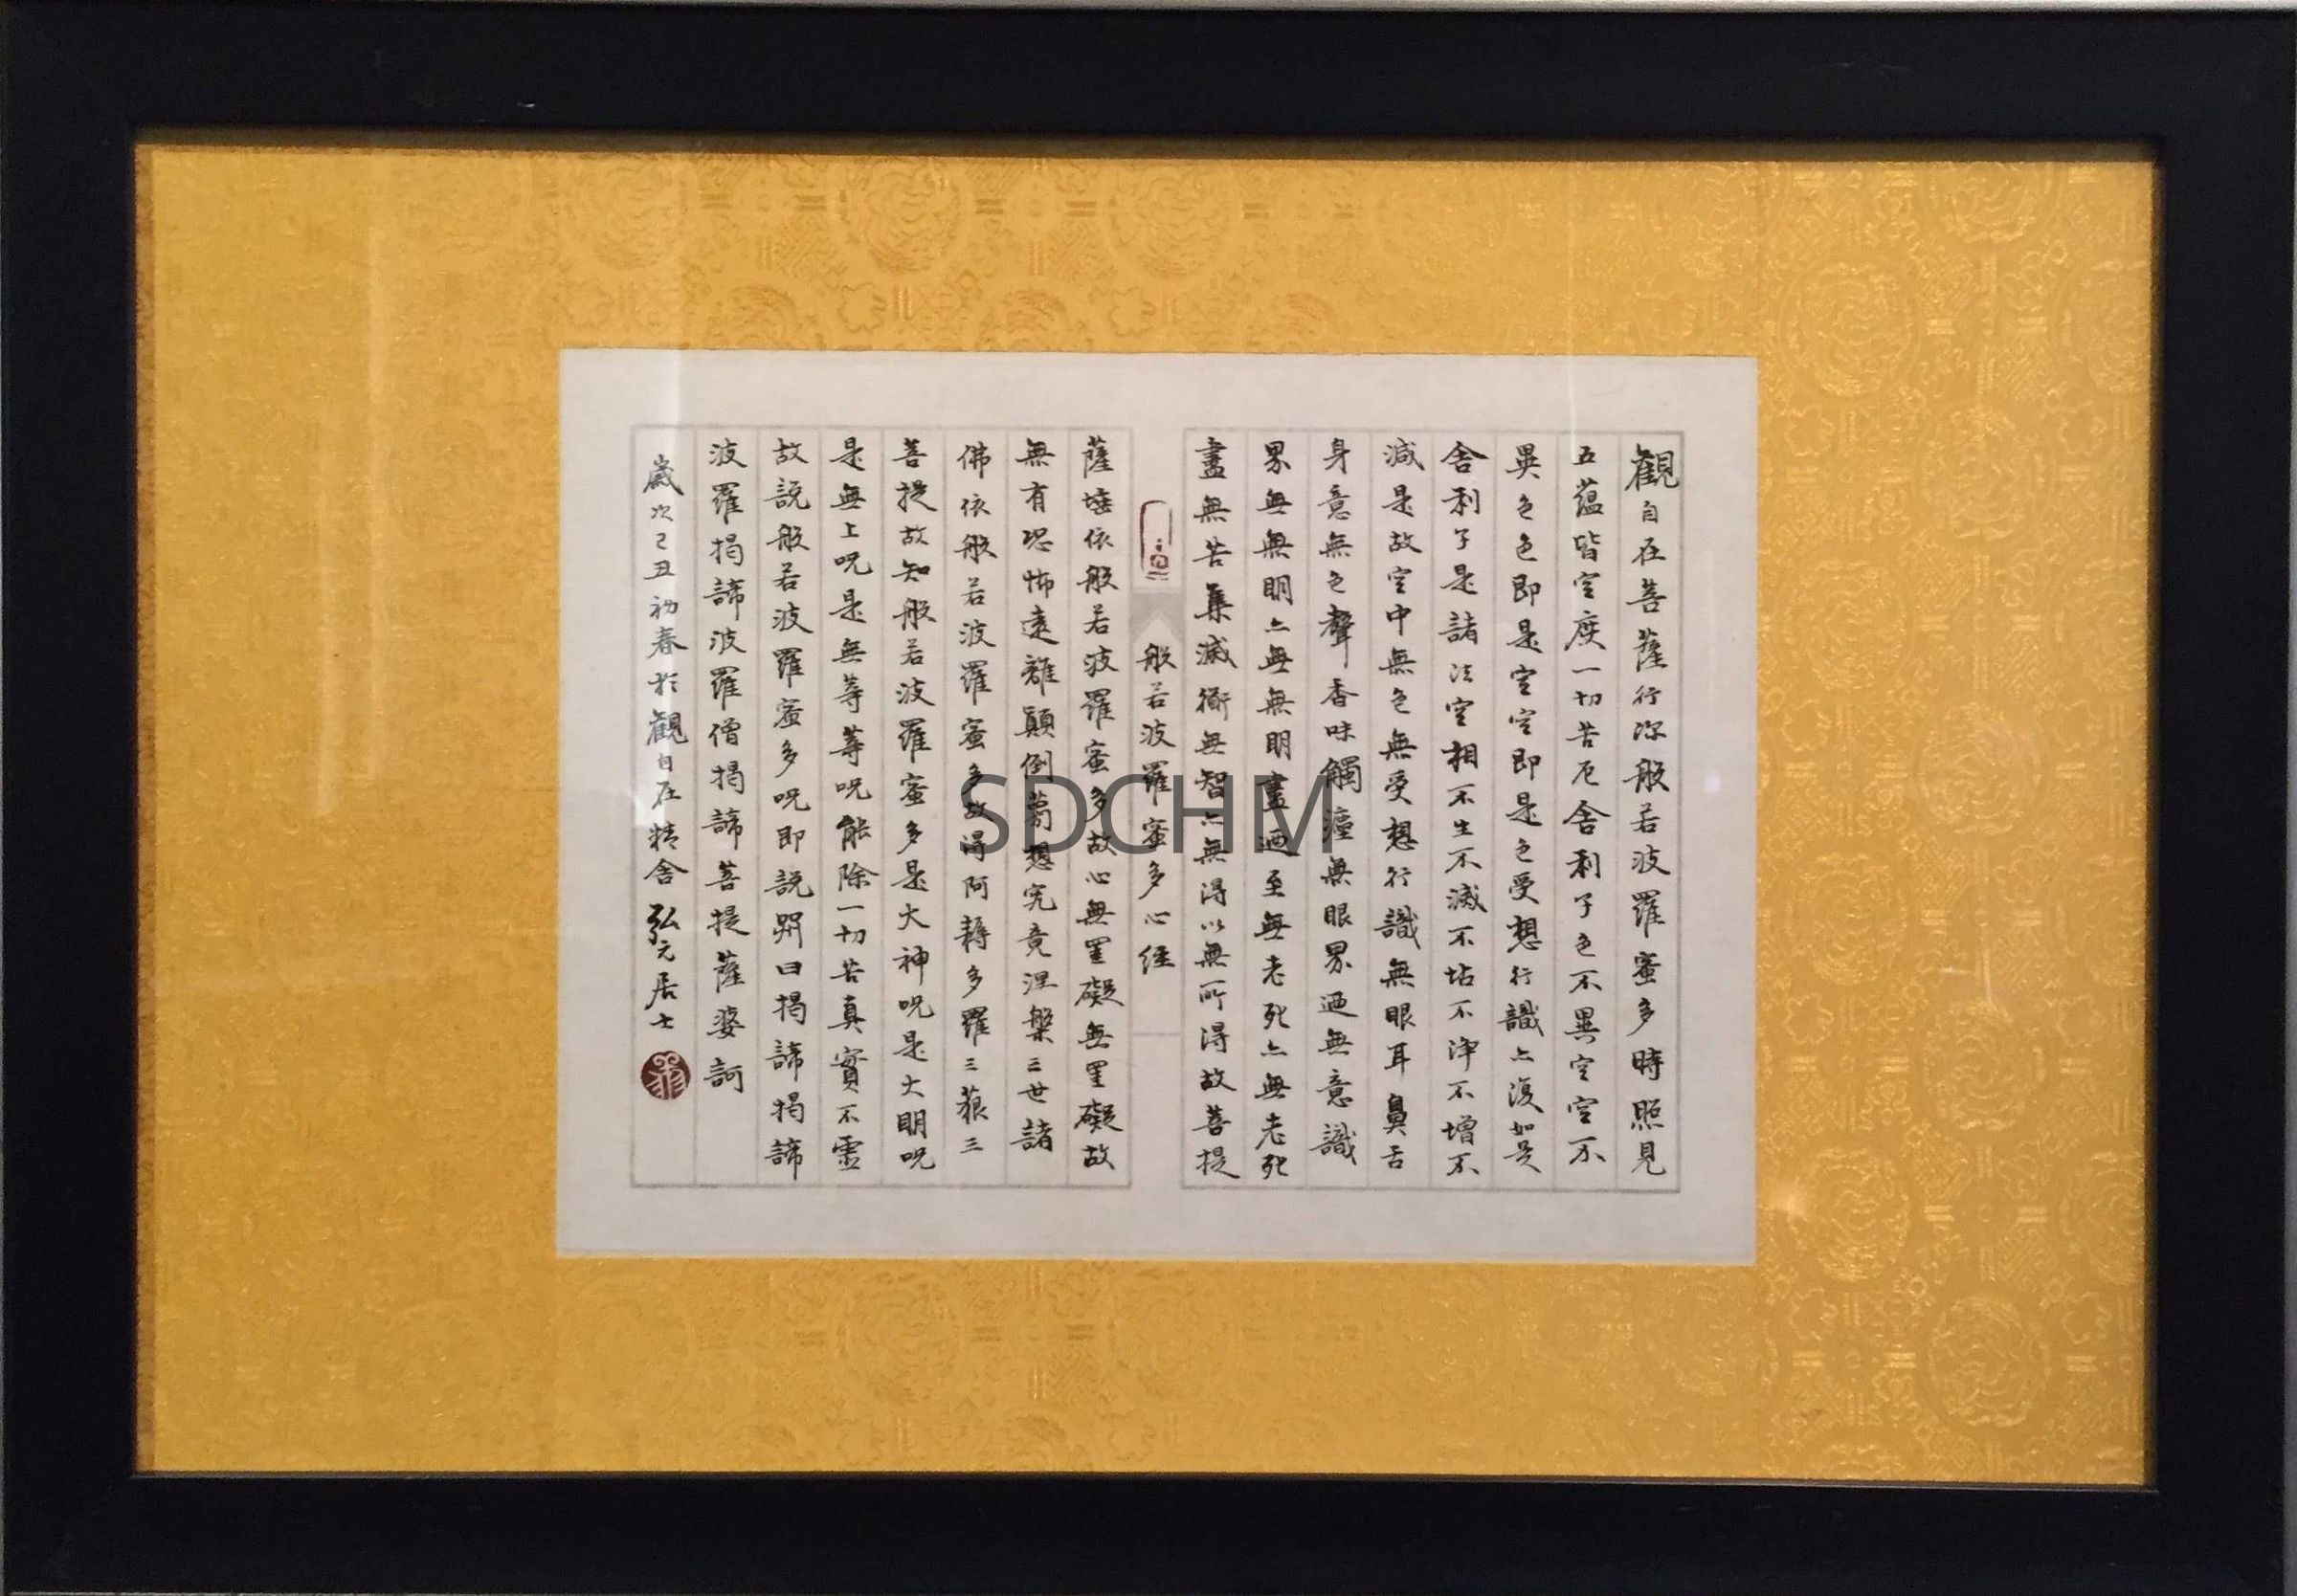 觀自在菩薩行深般若波羅蜜多時照見
五蘊皆空度一切苦厄舍利子色不異空空不
異色色即是空空即是色受想行識亦復如是
舍利子是諸法空相不生不滅不垢不淨不增不
減是故空中無色無受想行識無眼耳鼻舌
身意無色聲香味觸灋無眼界迺無意識
界無無明亦無無明盡迺至無老死亦無老死
盡無苦集滅衜無智亦無得以無所得故菩提
般若波羅蜜多心經
薩埵依般若波羅蜜多故心無罣礙無罣礙故
無有恐怖遠離顛倒夢想究竟涅槃三世諸
佛依般若波羅蜜多故得阿耨多羅三藐三
菩提故知般若波羅蜜多是大神呪是大明呪
是無上呪是無等等呪能除一切苦真實不虛
故說般若波羅蜜多呪即說咒曰揭諦揭諦
波羅揭諦波羅僧揭諦菩提薩婆訶
歲次己丑初春於觀自在精舍弘元居士
SDCHM